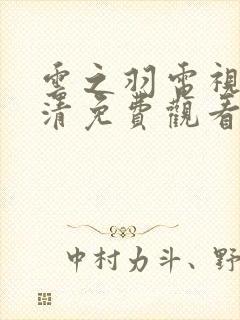 雲之羽電視
清免費觀看
中村力斗、野